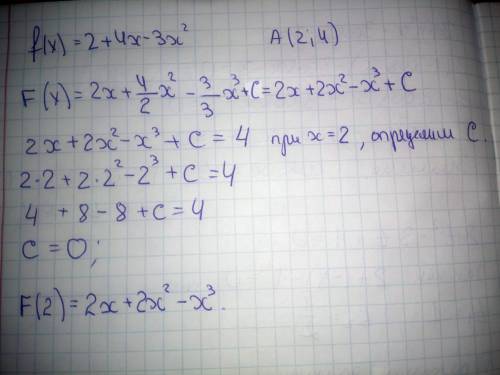 f(x) = 2 + 4x - 3x² A(2;4)
F(x) = 2x + 4/2 x² - 3/3 x³ + C = 2x + 2x² - x³ + C
2x + 2x² - x³ + C = 4 при x = 2, определим C.
2·2 + 2·2² - 2³ + C = 4
4 + 8 - 8 + C = 4
C = 0;
F(2) = 2x + 2x² - x³.